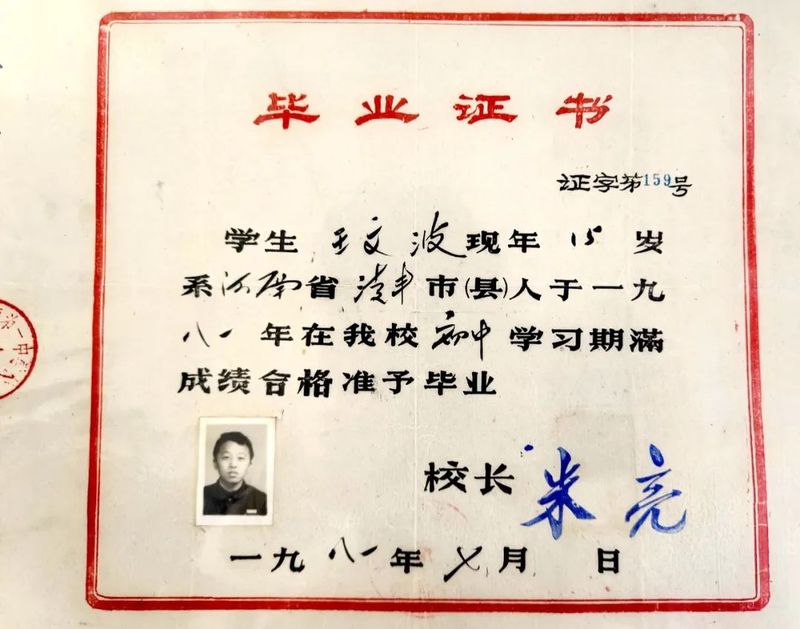 毕业证书
证字第159号
学生 王文波 现年 15 岁
系河南省清丰市(县)人于一九
八一年在我校初中学习期滿
成绩合格准予毕业
校长 米亮
一九八一年七月 日
第一中学